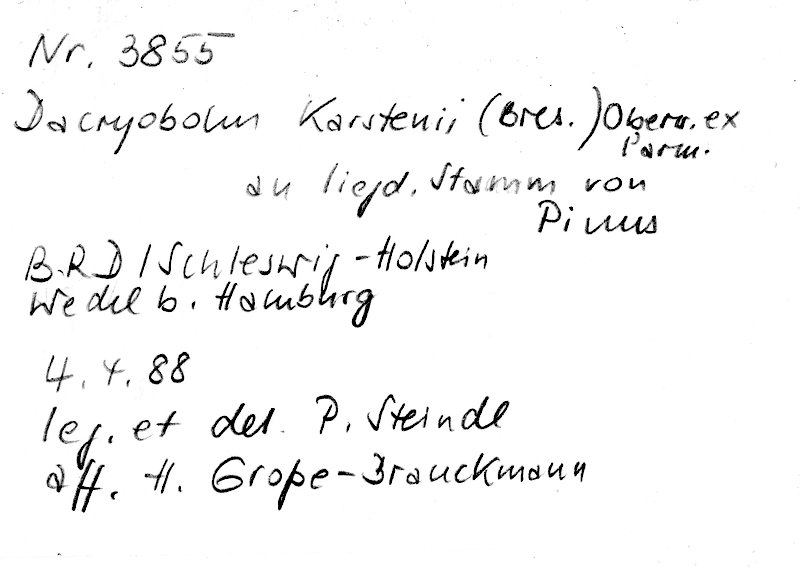 Nr. 3855
Dacryobolus Karstenii (Bres.) Oberw. ex
Parm.
an liegd. Stamm von
Pinus
B.R.D / Schleswig-Holstein
Wedel b. Hamburg
4. 4. 88
leg. et det. P. Steindl
aff. H. Große-Brauckmann